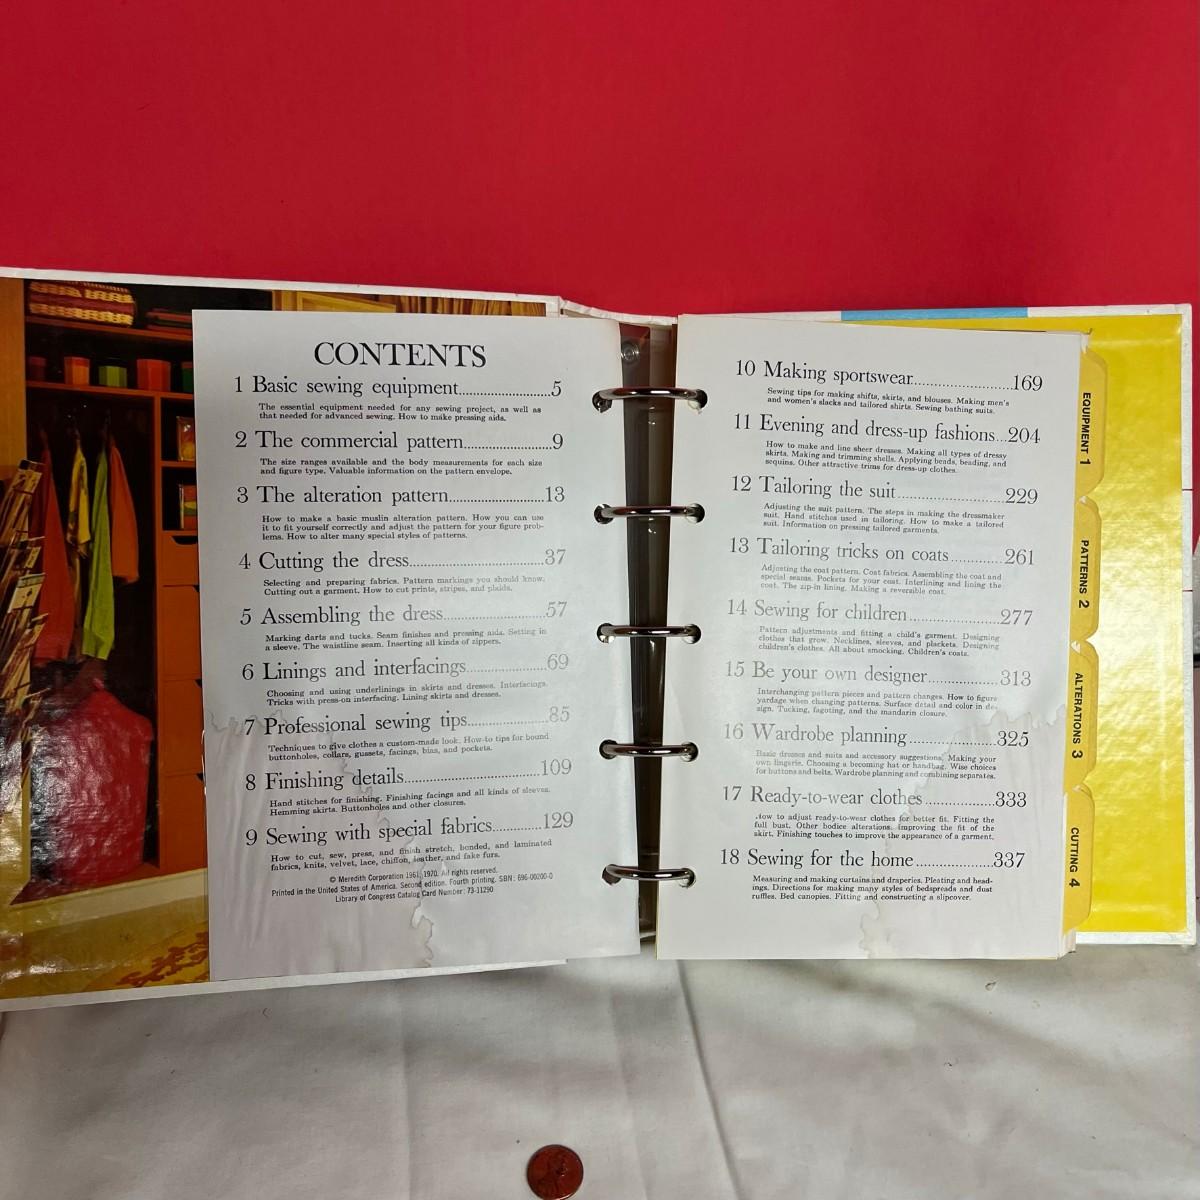 CONTENTS
1 Basic sewing equipment..................5
The essential equipment needed for any sewing project, as well as
that needed for advanced sewing. How to make pressing aids.
2 The commercial pattern.................9
The size ranges available and the body measurements for each size
and figure type. Valuable information on the pattern envelope.
3 The alteration pattern..................13
How to make a basic muslin alteration pattern. How you can use
it to fit yourself correctly and adjust the pattern for your figure prob-
lems. How to alter many special styles of patterns.
4 Cutting the dress.........................37
Selecting and preparing fabrics. Pattern markings you should know.
Cutting out a garment. How to cut prints, stripes, and plaids.
5 Assembling the dress...................57
Marking darts and tucks. Seam finishes and pressing aids. Setting in
a sleeve. The waistline seam. Inserting all kinds of zippers.
6 Linings and interfacings...............69
Choosing and using underlinings in skirts and dresses. Interfacings.
Tricks with press-on interfacing. Lining skirts and dresses.
7 Professional sewing tips...............85
Techniques to give clothes a custom-made look. How-to tips for bound
buttonholes, collars, gussets, facings, bias, and pockets.
8 Finishing details.........................109
Hand stitches for finishing. Finishing facings and all kinds of sleeves.
Hemming skirts. Buttonholes and other closures.
9 Sewing with special fabrics............129
How to cut, sew, press, and finish stretch, bonded, and laminated
fabrics, knits, velvet, lace, chiffon, leather, and fake furs.
© Meredith Corporation 1961, 1970. All rights reserved.
Printed in the United States of America. Second edition. Fourth printing. SBN: 696-00200-0
Library of Congress Catalog Card Number: 73-11290
10 Making sportswear..................169
Sewing tips for making shifts, skirts, and blouses. Making men's
and women's slacks and tailored shirts. Sewing bathing suits.
11 Evening and dress-up fashions...204
How to make and line sheer dresses. Making all types of dressy
skirts. Making and trimming shells. Applying beads, beading, and
sequins. Other attractive trims for dress-up clothes.
12 Tailoring the suit....................229
Adjusting the suit pattern. The steps in making the dressmaker
suit. Hand stitches used in tailoring. How to make a tailored
suit. Information on pressing tailored garments.
13 Tailoring tricks on coats..........261
Adjusting the coat pattern. Coat fabrics. Assembling the coat and
special seams. Pockets for your coat. Interlining and lining the
coat. The zip-in lining. Making a reversible coat.
14 Sewing for children.................277
Pattern adjustments and fitting a child's garment. Designing
clothes that grow. Necklines, sleeves, and plackets. Designing
children's clothes. All about smocking. Children's coats.
15 Be your own designer..............313
Interchanging pattern pieces and pattern changes. How to figure
yardage when changing patterns. Surface detail and color in de-
sign. Tucking, fagoting, and the mandarin closure.
16 Wardrobe planning.................325
Basic dresses and suits and accessory suggestions. Making your
own lingerie. Choosing a becoming hat or handbag. Wise choices
for buttons and belts. Wardrobe planning and combining separates.
17 Ready-to-wear clothes.............333
How to adjust ready-to-wear clothes for better fit. Fitting the
full bust. Other bodice alterations. Improving the fit of the
skirt. Finishing touches to improve the appearance of a garment.
18 Sewing for the home...............337
Measuring and making curtains and draperies. Pleating and head-
ings. Directions for making many styles of bedspreads and dust
ruffles. Bed canopies. Fitting and constructing a slipcover.
EQUIPMENT 1
PATTERNS 2
ALTERATIONS 3
CUTTING 4